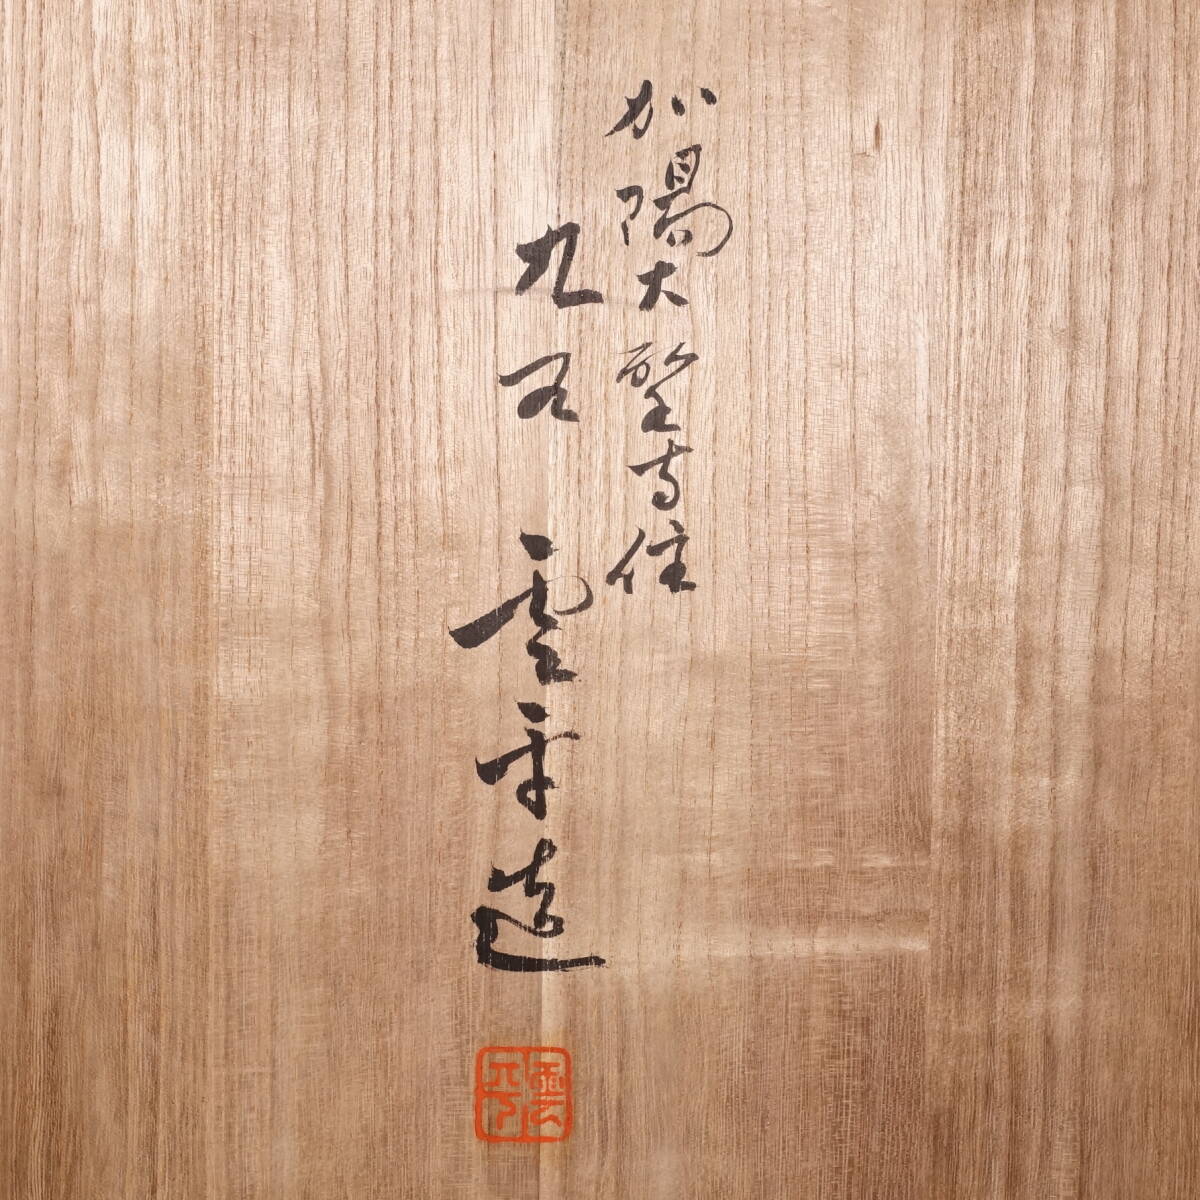 加陽大聖寺住
雲平造
雲平